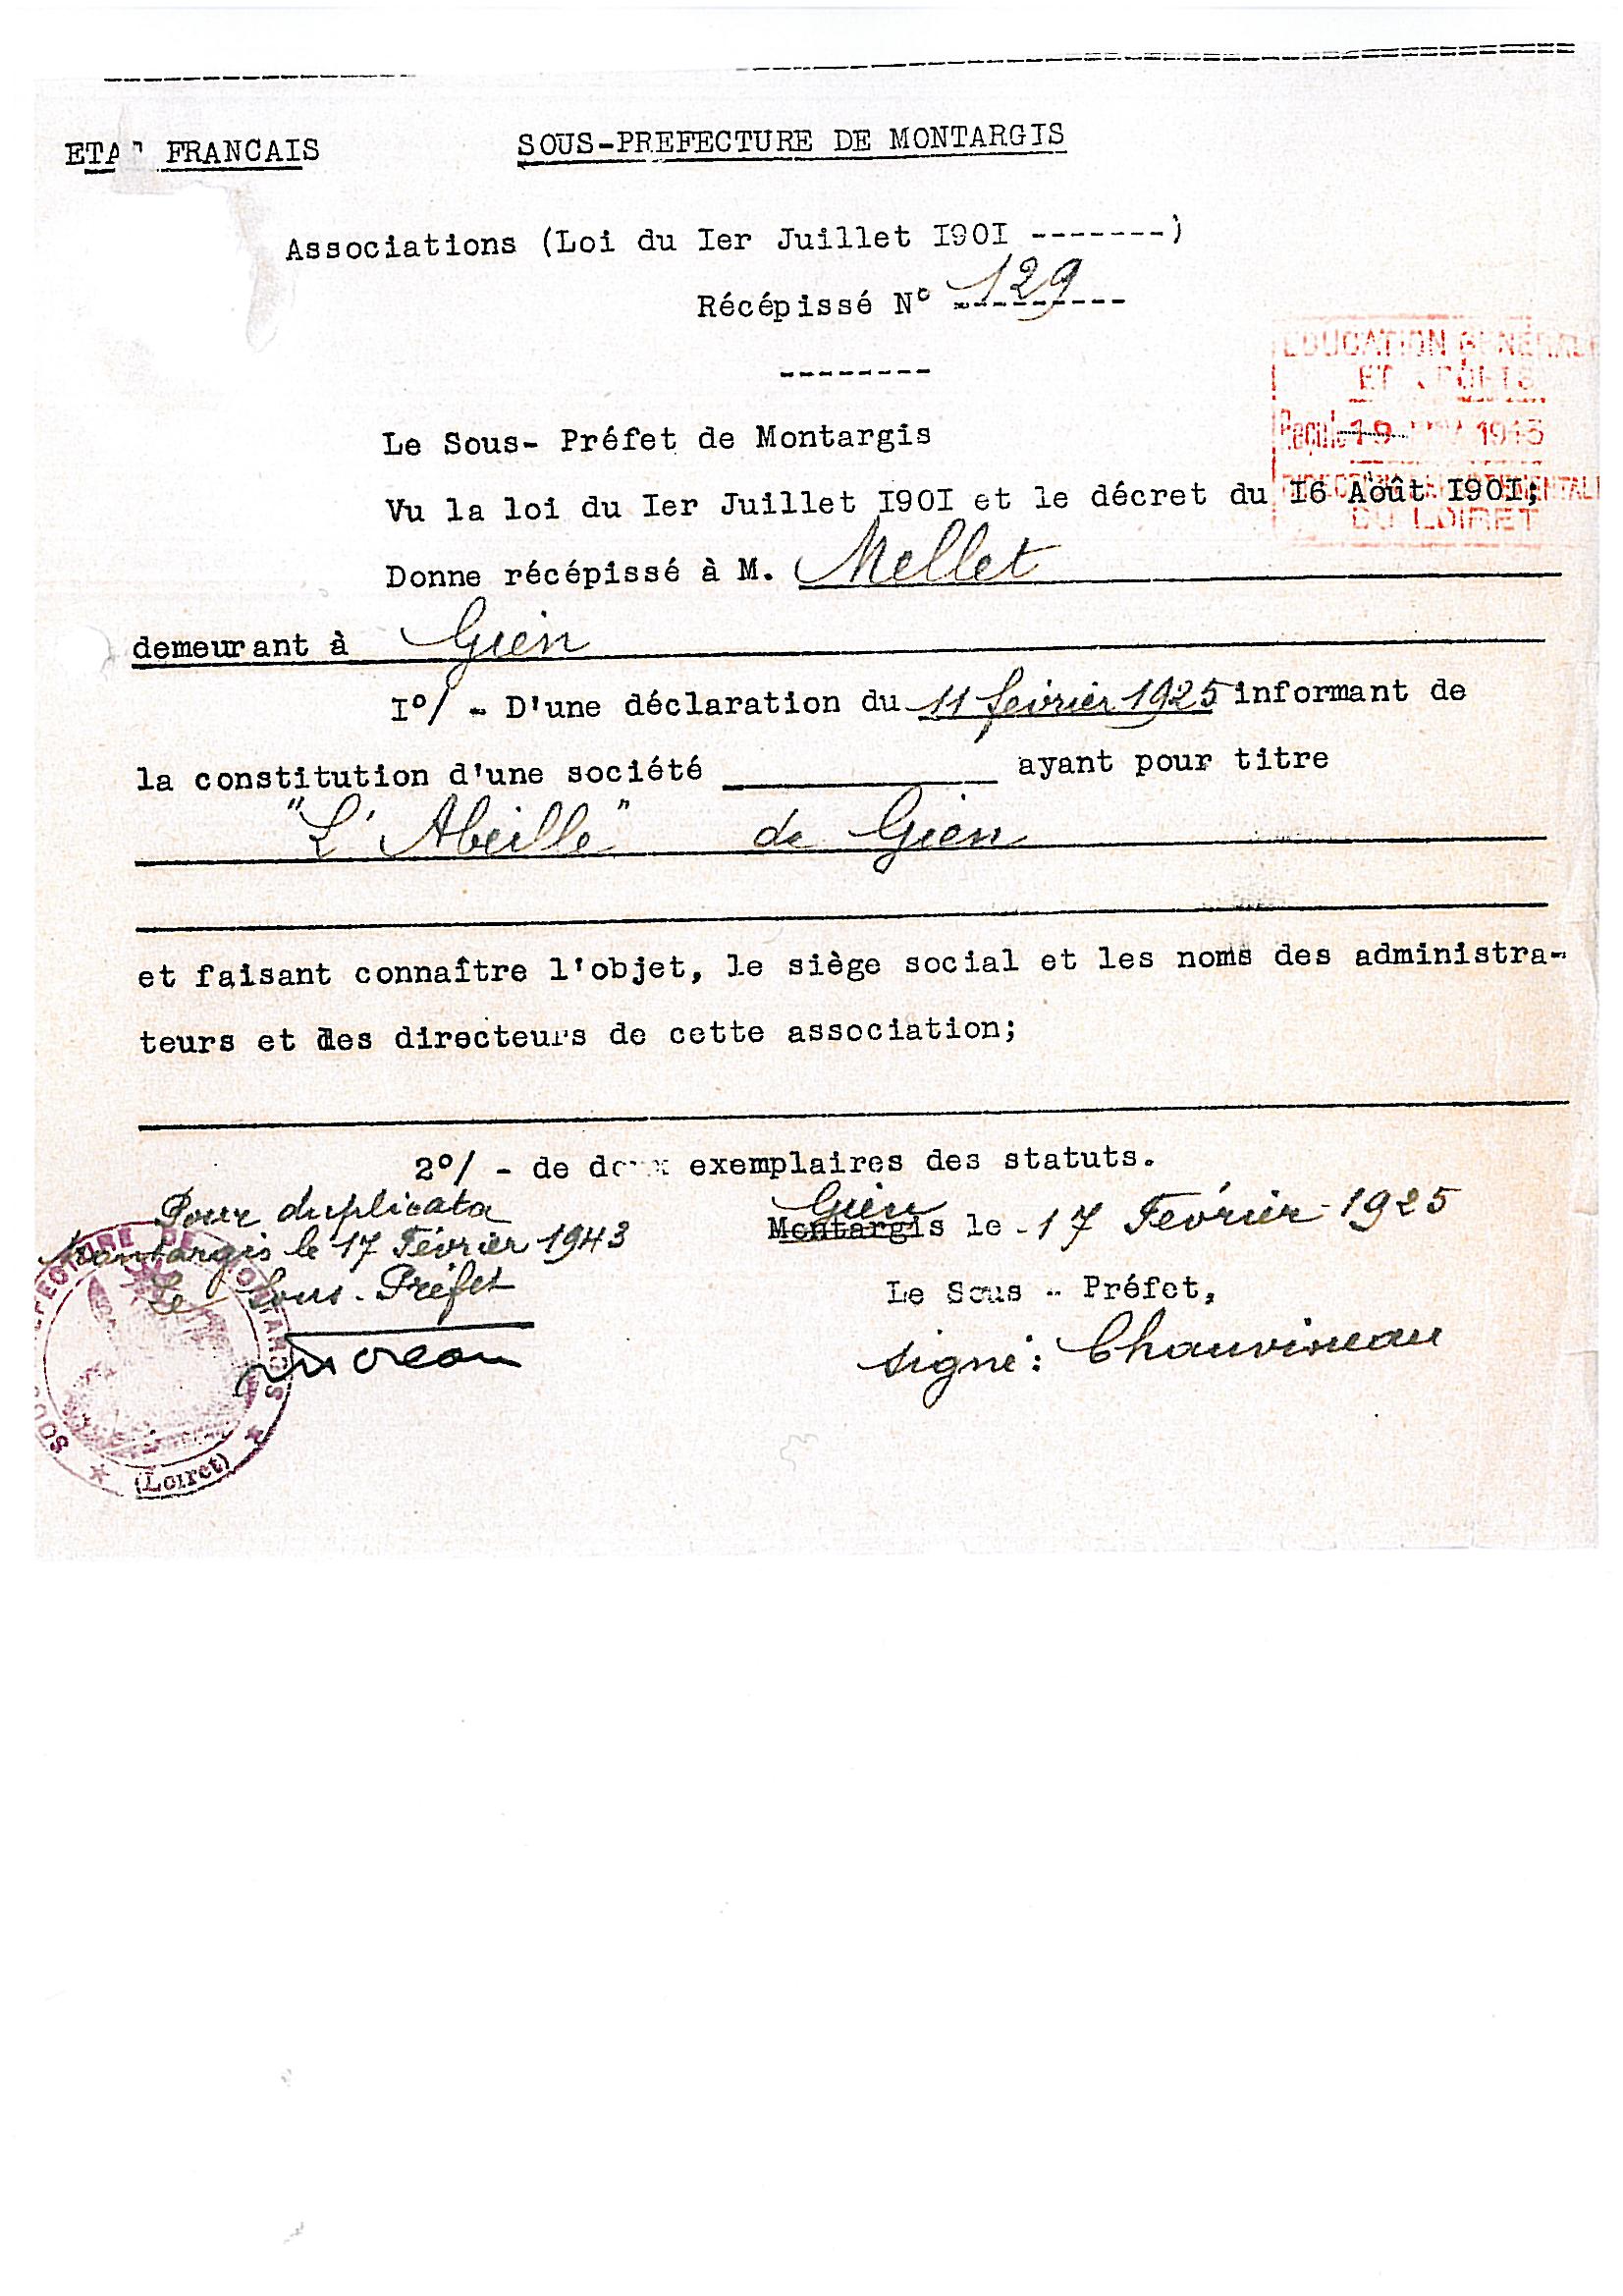 ETAT FRANCAIS
SOUS-PREFECTURE DE MONTARGIS
Associations (Loi du Ier Juillet I90I -------)
Récépissé N° 129
--------
EDUCATION GENERALE
ET SPORTS
Reçu le 19 1943
DU LOIRET
Le Sous- Préfet de Montargis
Vu la loi du Ier Juillet I90I et le décret du I6 Août I90I;
Donne récépissé à M. Mellet
demeurant à Gien
I°/ - D'une déclaration du 11 février 1925 informant de
la constitution d'une société ayant pour titre
"L'Abeille" de Gien
et faisant connaître l'objet, le siège social et les noms des administra-
teurs et des directeurs de cette association;
2°/ - de deux exemplaires des statuts.
Pour duplicata
Montargis le 17 Février 1943
Le Sous-Préfet
Gien
Montargis le - 17 Février - 1925
Le Sous - Préfet,
signé: Chauvineau
SOUS-PREFECTURE DE MONTARGIS
(Loiret)